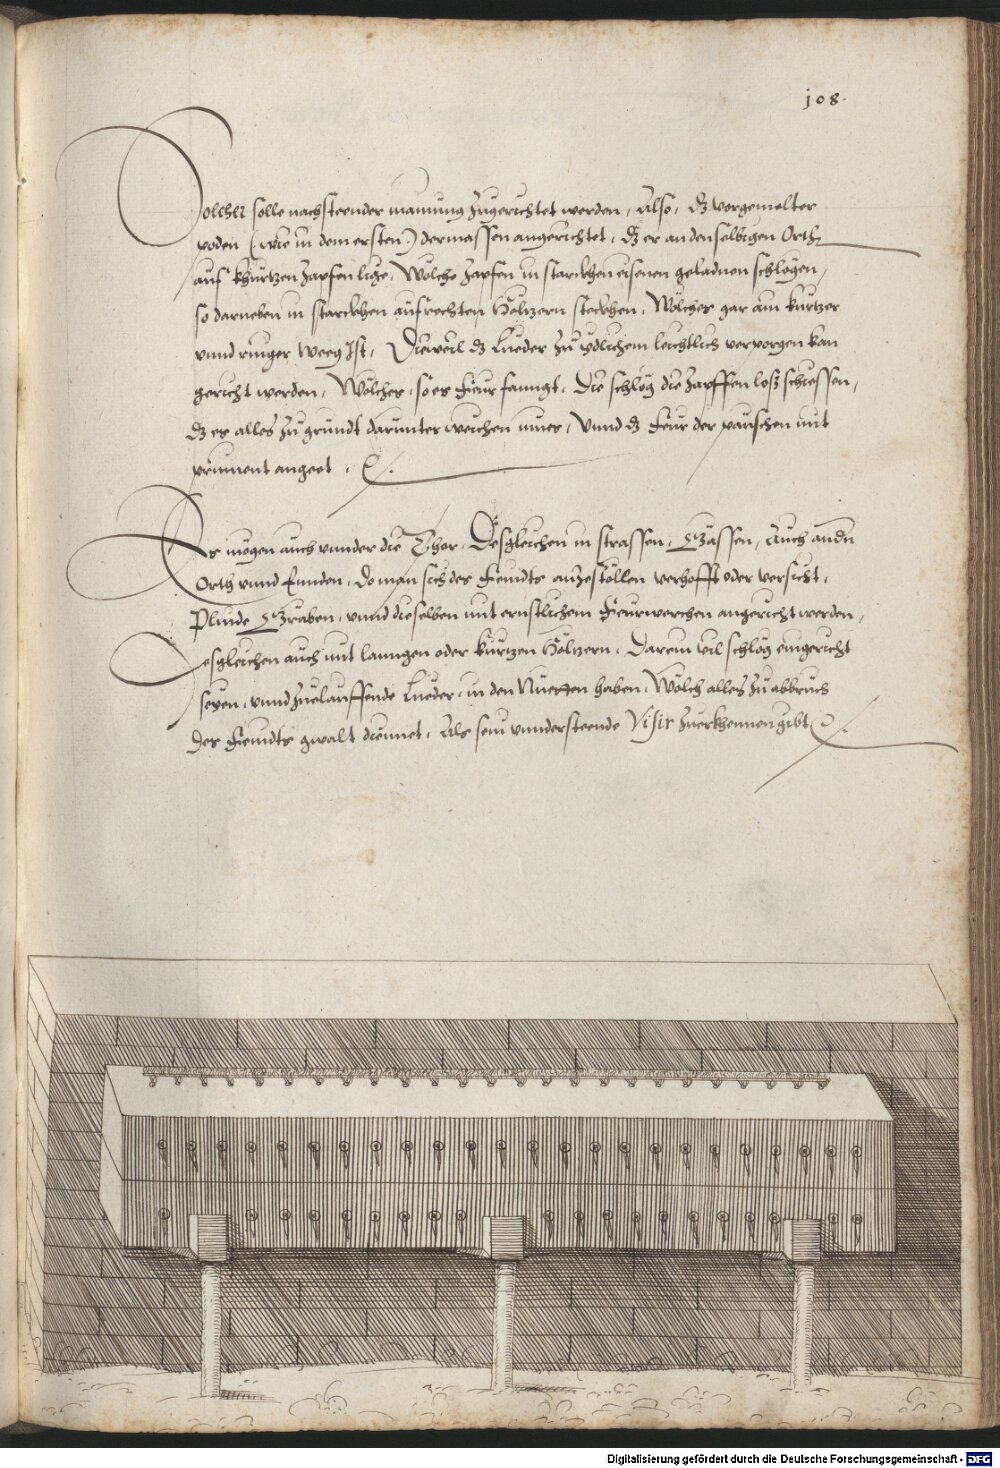 108.
Solcher solle nachsteender mainung zugerichtet werden, Also, dz vorgemelter
poden (wie in dem ersten) dermassen angerichtet, dz er an denselbigen Orth
auf khurtzen zapfen lige, Wölche zapfen in starckhen eisenen geladnen schlögen,
so darneben in starckhen aufrechten Höltzern steckhen, Wölcher gar ain kurtzer
vnnd ringer weeg Ist, Dieweil dz Lueder zu ydlichem leichtlich verporgen kan
gericht werden, Wölches, so es feur fanngt, Die schlög die zapffen loß schiessen,
dz es alles zu grundt darunter weichen mues, Vnnd dz feur der pauschen mit
prummt angeet, .
Es mögen auch vnnder die Thor, Desgleichen in strassen, Gassen, Auch andern
Orth vnnd Ennden, do man sich des feindts anzestöllen verhofft oder versicht,
Plinde Graben, vnnd dieselben mit ernstlichem feurwerchen angericht werden,
Desgleichen auch mit lanngen oder kurtzen Höltzern, Darein vil schlög eingericht
seyen, vnnd zuelauffende Lueder, in den Nuetten haben, Wölch alles zu abbruch
des feindts gwalt diennet, Als sein vnndersteende Visir zuerkhennen gibt .
Digitalisierung gefördert durch die Deutsche Forschungsgemeinschaft - DFG